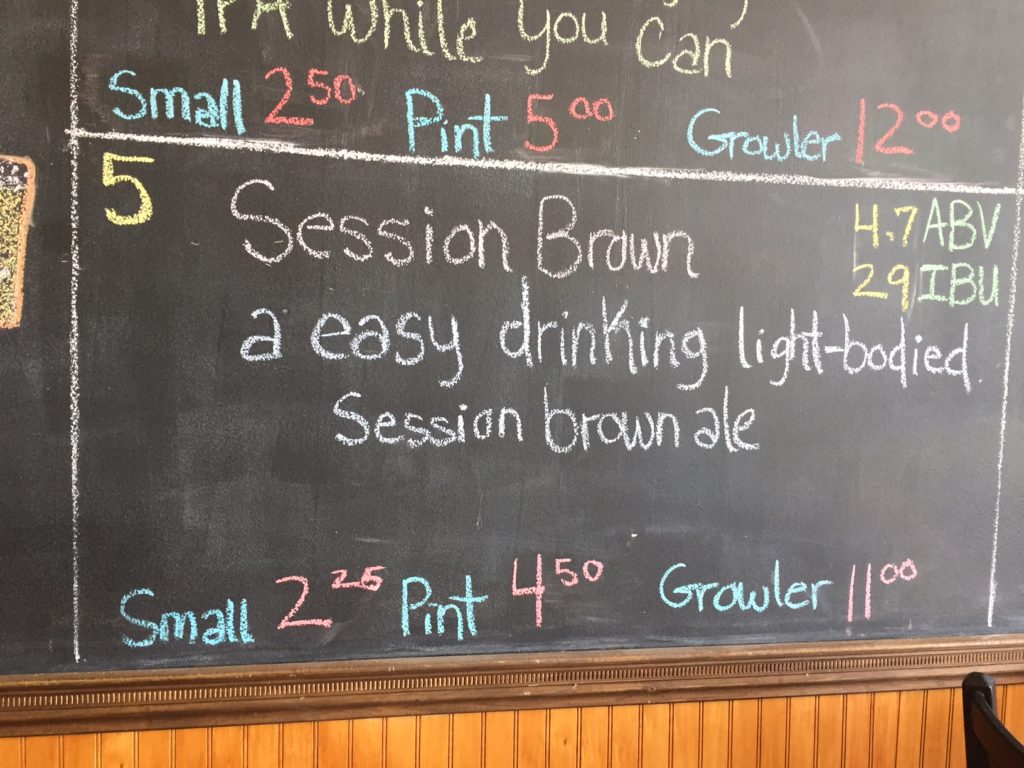 IPA While You Can
Small 2.50 Pint 5.00 Growler 12.00
5
Session Brown
4.7 ABV
29 IBU
a easy drinking light-bodied.
Session brown ale
Small 2.25 Pint 4.50 Growler 11.00